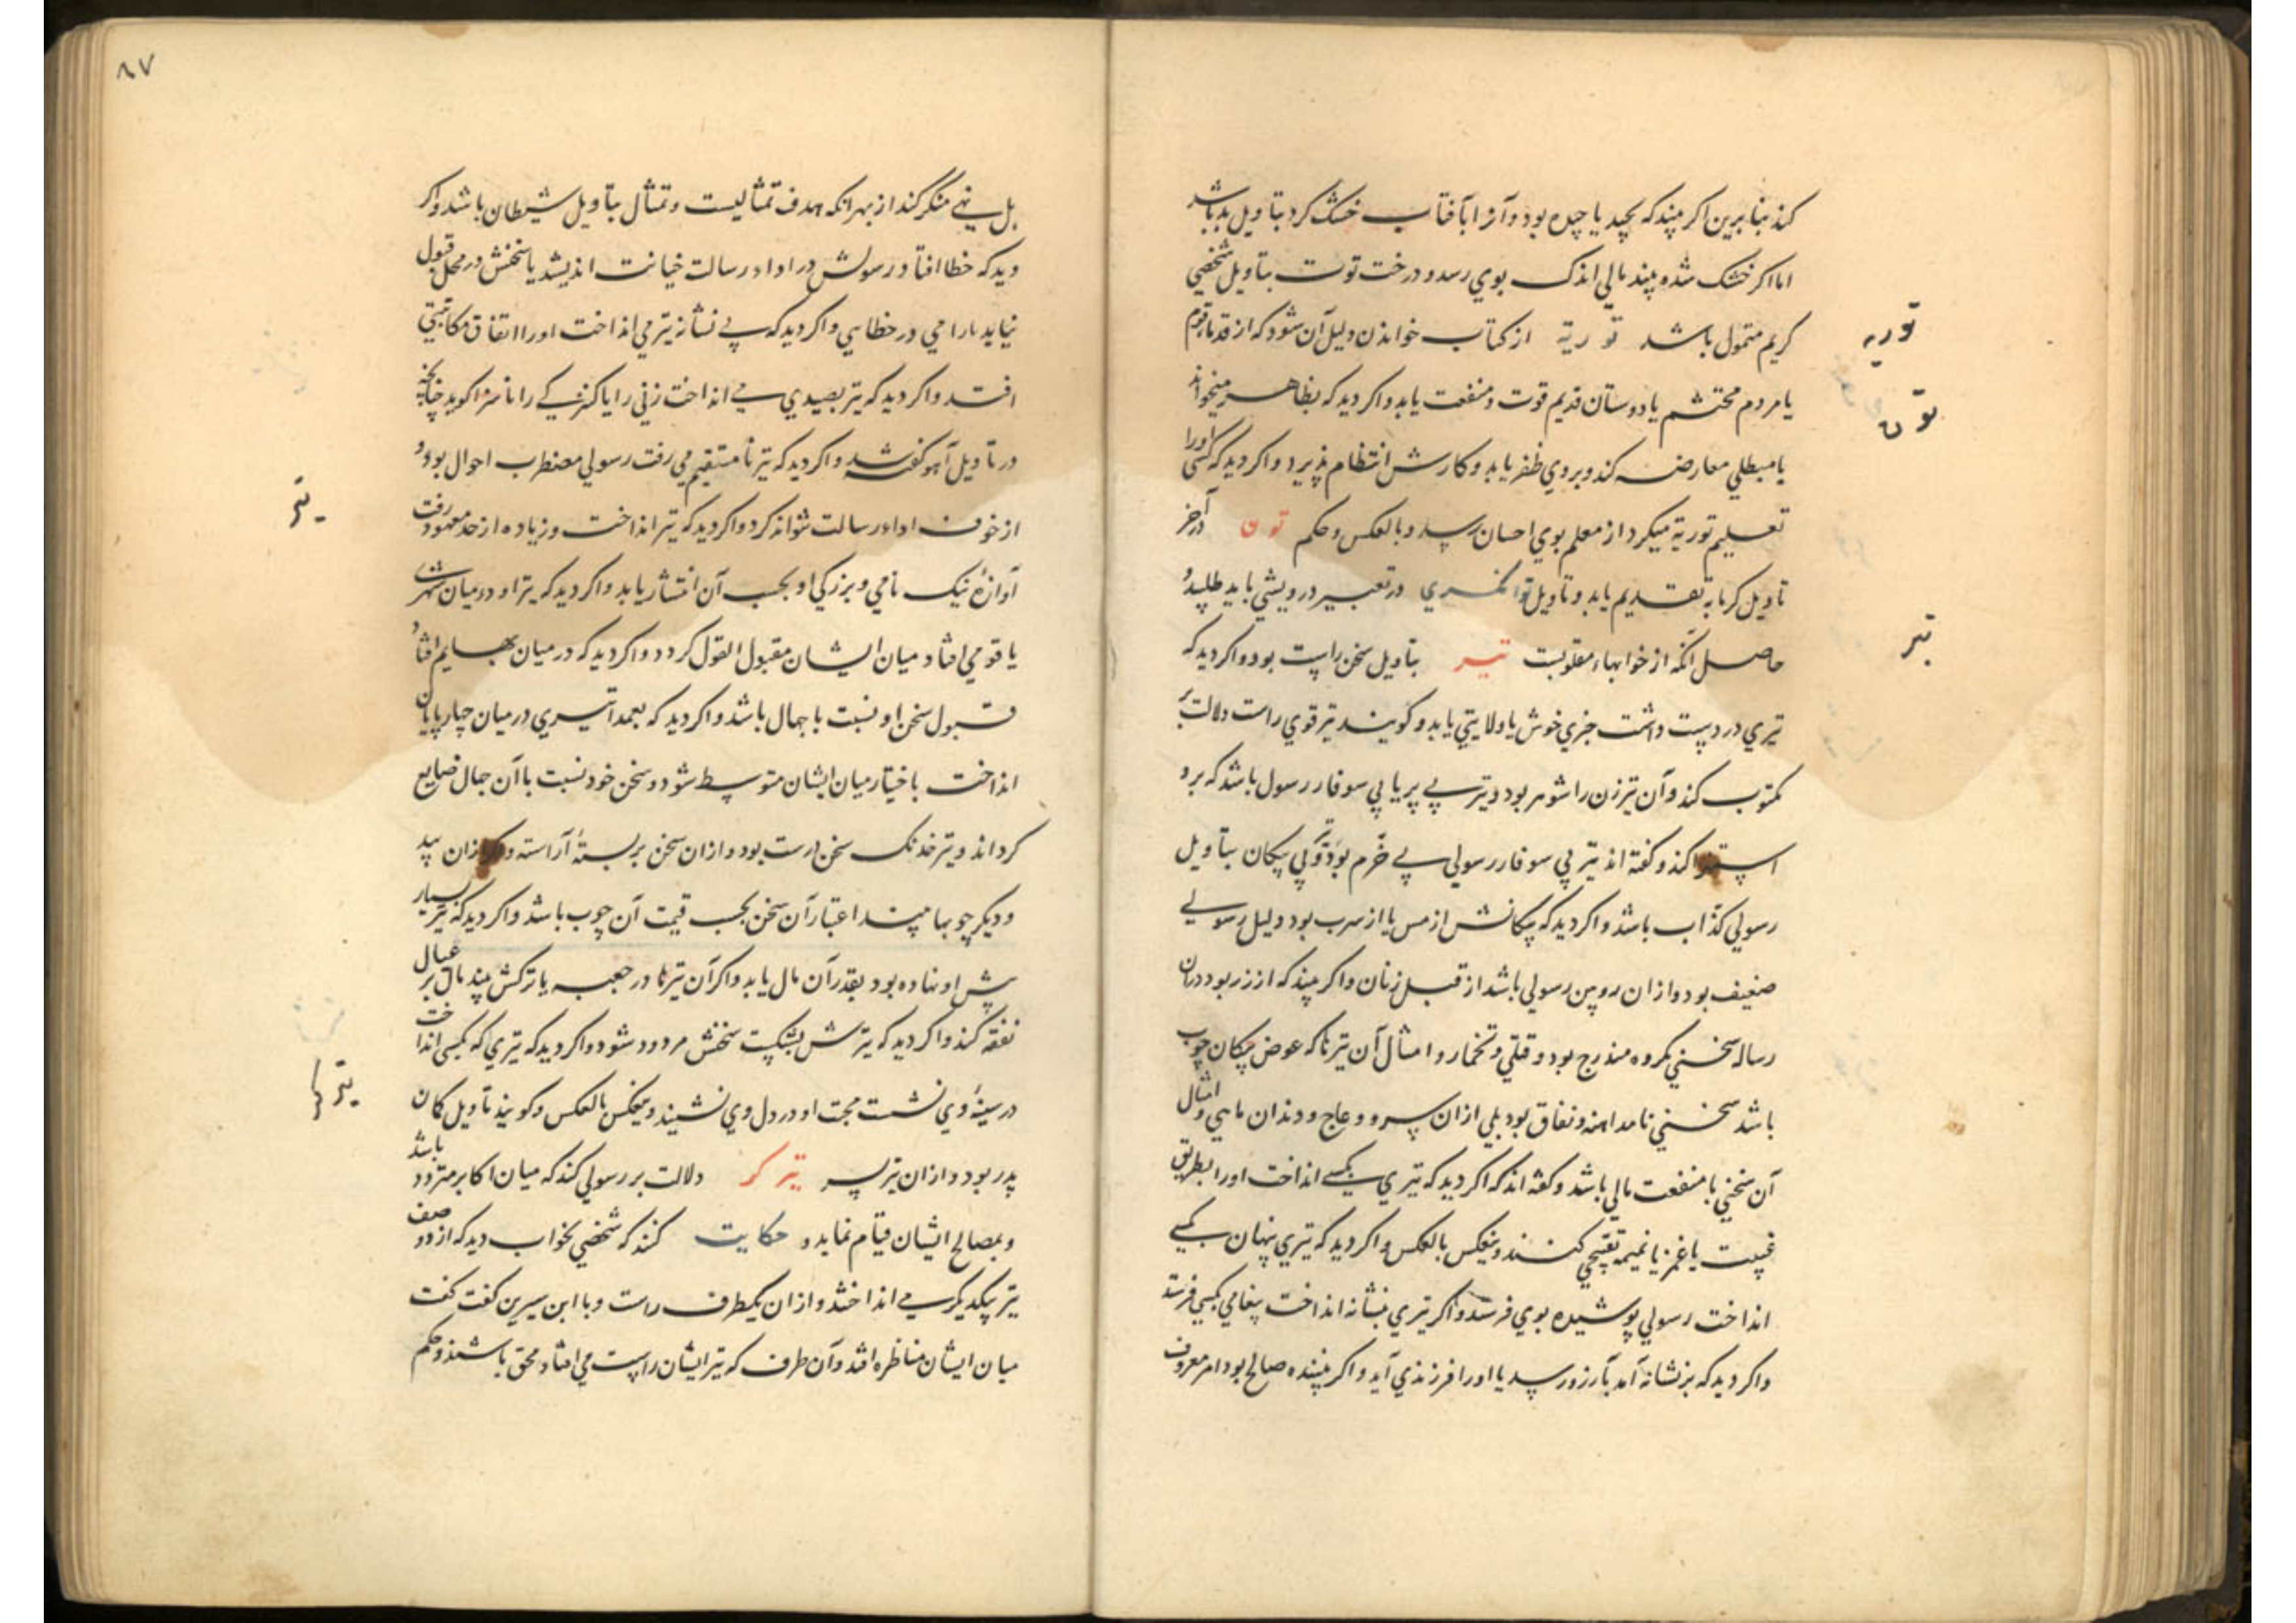 کند بنابرین اکر بیند که بچید یا چیده بود و آنرا بآفتاب خشک کرد بتاویل بد باشد
اما اکر خشک شده بیند مالی اندک بوی رسد و درخت توت بتاویل شخصی
کریم متمول باشد توریة از کتاب خواندن دلیل آن شود که از قدماء قوم
توریه
یا مردم محتشم یا دوستان قدیم قوت و منفعت یابد و اکر دید که بظاهر میخواند
تون
یا مبطلی معارضه کند و بروی ظفر یابد و کارش انتظام پذیرد و اکر دید که کسی اورا
تعلیم توریة میکرد از معلم بوی احسان رسد و بالعکس و حکم تون در آخر
تاویل کرمابه تقدیم یابد و تاویل توانکری در تعبیر درویشی باید طلبید و
حاصل آنکه از خوابهاء مقلوبست تیر بتاویل سخن راست بود و اکر دید که
تیر
تیری در دست داشت خبری خوش یا ولایتی یابد و کویند تیر قوی راست دلالت بر
مکتوب کند و آن تیر زن را شوهر بود و تیر بی پر یا بی سوفار رسول باشد که برو
استهزا کند و کفته اند تیر بی سوفار رسولی بی خرم بود و بی پیکان بتاویل
رسولی کذاب باشد و اکر دید که پیکانش از مس یا از سرب بود دلیل رسولی
ضعیف بود و از ان رویین رسولی باشد از قبل زنان و اکر بیند که از زر بود در ان
رساله سخنی مکروه مندرج بود و قلتی و تخمار و امثال آن تیرها که عوض پیکان چوب
باشد سخنی با مداهنه و نفاق بود بلی از ان سرو و عاج و دندان ماهی و امثال
آن سخنی با منفعت مالی باشد و کفته اند که اکر دید که تیری بکسی انداخت اورا بطریق
غیبت یا غمز یا نمیمه تقبیحی کند و ینعکس بالعکس و اکر دید که تیری پنهان بکسی
انداخت رسولی پوشیده بوی فرستد و اکر تیری بنشانه انداخت پیغامی بکسی فرستد
و اکر دید که بر نشانه آمد بآرزو رسد یا اورا فرزندی آید و اکر بیننده صالح بود امر معروف
۸۷
بل نهی منکر کند از بهر انکه هدف تمثالیست و تمثال بتاویل شیطان باشد و اکر
دید که خطا افتاد رسولش در اداء رسالت خیانت اندیشد یا سخنش در محل قبول
نیاید یا رامی در خطا یی و اکر دید که بی نشانه تیر می انداخت اورا اتفاق مکاتبتی
افتد و اکر دید که تیر بصیدی می انداخت زنی را یا کنیزکی را ناسزا کوید چنانچه
در تاویل آهو کفته شد و اکر دید که تیر نامستقیم می رفت رسولی مضطرب احوال بود و
تیر
از خوف اداء رسالت نتواند کرد و اکر دید که تیر انداخت و زیاده از حد معهود رفت
آوازهٔ نیک نامی و بزرکی او بحسب آن انتشار یابد و اکر دید که تیر او در میان شهری
یا قومی افتاد میان ایشان مقبول القول کردد و اکر دید که در میان بهایم افتاد
قبول سخن او نسبت با جهال باشد و اکر دید که بعمدا تیری در میان چهارپایان
انداخت باختیار میان ایشان متوسط شود و سخن خود نسبت با آن جهال ضایع
کرداند و تیر خدنک سخن درست بود و از ان سخن بر بسته آراسته و اکر از ان بید
و دیکر چوبها بیند اعتبار آن سخن بحسب قیمت آن چوب باشد و اکر دید که تیر بسیار
پیش او نهاده بود بقدر آن مال یابد و اکر آن تیرها در جعبه یا ترکش بیند مال بر عیال
نفقه کند و اکر دید که تیرش بشکست سخنش مردود شود و اکر دید که تیری که بکسی انداخت
در سینهٔ وی نشست محبت او در دل وی نشیند و ینعکس بالعکس و کویند تاویل کمان
تیرها
پدر بود و از ان تیر پسر تیر کر دلالت بر رسولی کند که میان اکابر متردد باشد
و بمصالح ایشان قیام نماید و حکایت کنند که شخصی بخواب دید که از دو صف
تیر بیکدیکر می انداختند و از ان یکطرف راست و با ابن سیرین کفت کفت
میان ایشان مناظره افتد و آن طرف که تیر ایشان راست می افتاد محق باشند و حکم